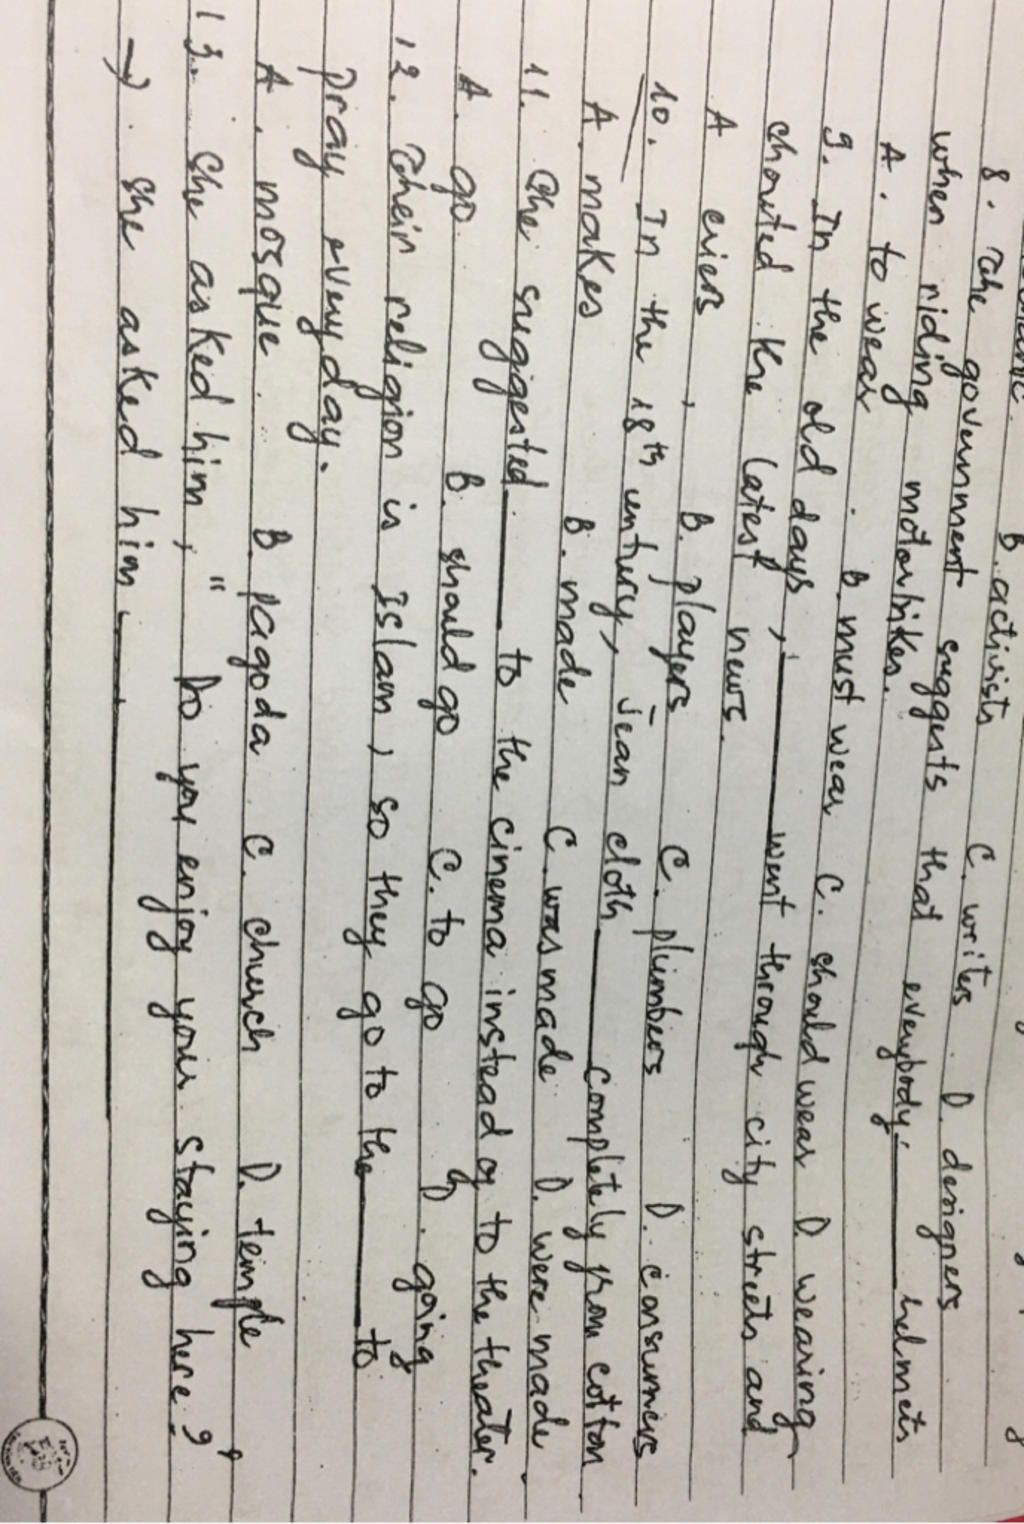 B. activists C. writes . D. designers
8. The government suggests that everybody ____ helmets
when riding motorbikes.
A. to wear . B. must wear C. should wear D. wearing
9. In the old days, ____ went through city streets and
shouted the latest news.
A criers , B. players C. plumbers D. consumers
10. In the 18th century, Jean cloth ____ completely from cotton
A. makes B. made C. was made D. were made.
11. She suggested ____ to the cinema instead of to the theater.
A. go. B. should go C. to go D. going
12. Their religion is Islam, so they go to the ____ to
pray everyday.
A. mosque . B. pagoda C. church D. temple
13. She asked him, " Do you enjoy your staying here?"
→. She asked him ____.